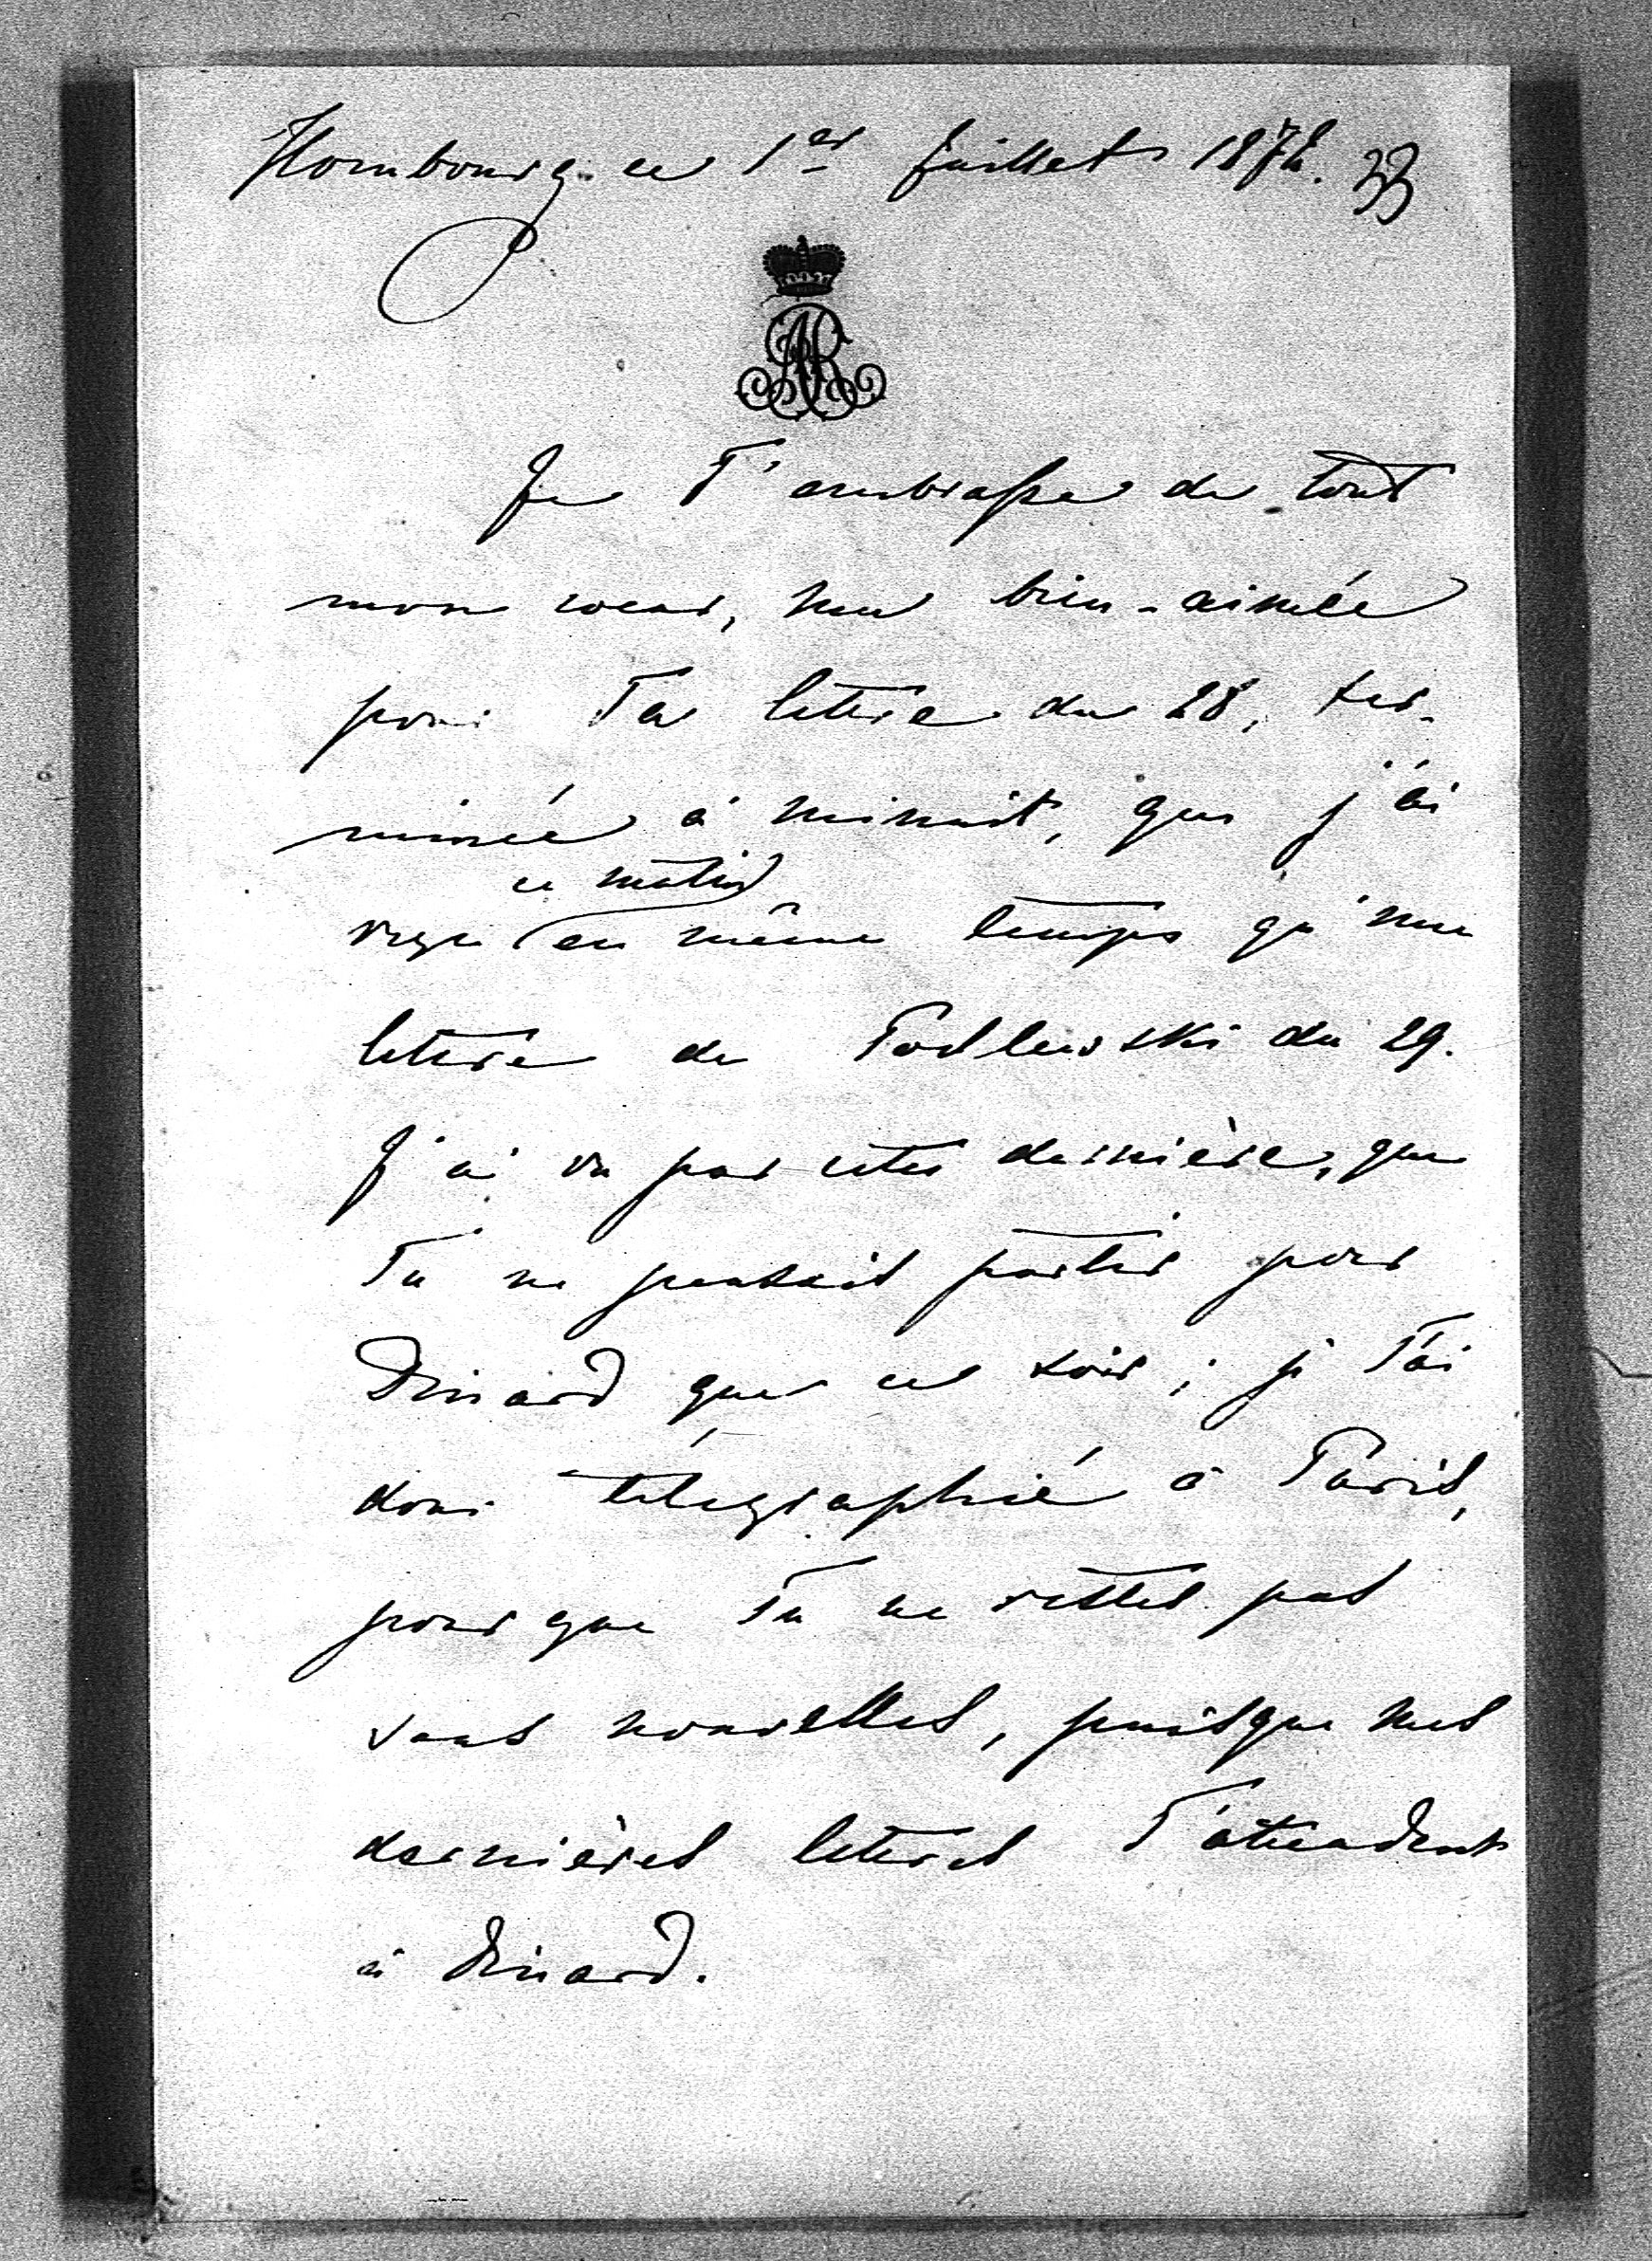 Hombourg ce 1er Juillet 1872. 33
AR
Je T'embrasse de tout
mon coeur, ma bien-aimée
pour Ta lettre du 28, ter-
minée à minuit, que j'ai
ce matin
reçu en même temps qu'une
lettre de Podlewski du 29.
J'ai vu par cette dernière, que
Tu ne pensais partir pour
Dinard que ce soir; je T'ai
donc télégraphié à Paris,
pour que Tu ne restes pas
sans nouvelles, puisque mes
dernières lettres T'attendent
à Dinard.